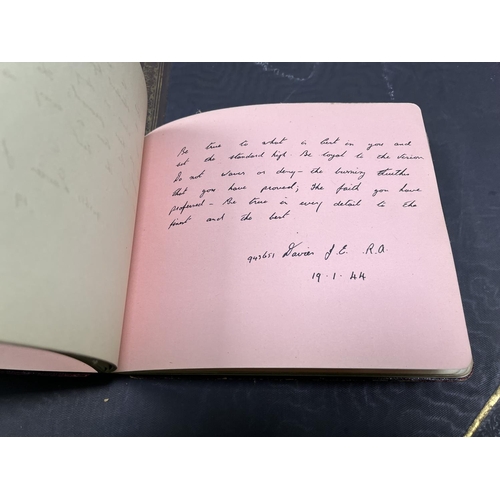 Be true to what is best in you and
set the standard high. Be loyal to the vision
Do not waver or deny - the burning truths
that you have proved, The faith you have
professed - Be true in every detail to the
finest and the best
Davies J. E. R.A.
19.1.44